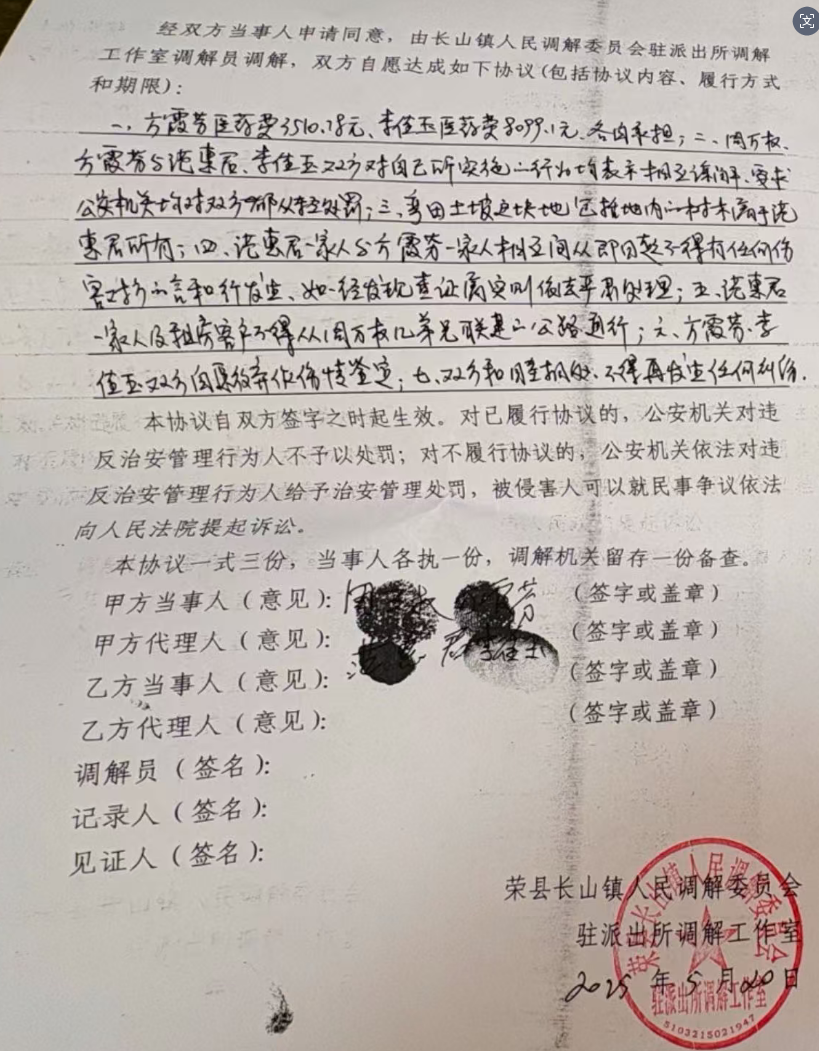 经双方当事人申请同意，由长山镇人民调解委员会驻派出所调解
工作室调解员调解，双方自愿达成如下协议(包括协议内容、履行方式
和期限)：
一、方霞芳医药费3510.78元、李佳玉医药费8099.1元、各自承担；二、周万权、
方霞芳与范惠君、李佳玉双方对自己所实施的行为均表示相互谅解、要求
公安机关均对双方都从轻处罚；三、弯田土坡这块地包括地内的树木属于范
惠君所有；四、范惠君一家人与方霞芳一家人相互间从即日起不得有任何伤
害对方的言和行发生、如一经发现查证属实则依法严肃处理；五、范惠君
一家人及租房客户不得从周万权几弟兄联建的公路通行；六、方霞芳、李
佳玉双方自愿放弃作伤情鉴定；七、双方和睦相处、不得再发生任何纠纷.
本协议自双方签字之时起生效。对已履行协议的，公安机关对违
反治安管理行为人不予以处罚；对不履行协议的，公安机关依法对违
反治安管理行为人给予治安管理处罚，被侵害人可以就民事争议依法
向人民法院提起诉讼。
本协议一式三份，当事人各执一份，调解机关留存一份备查。
甲方当事人（意见）：周 芳 （签字或盖章）
甲方代理人（意见）： （签字或盖章）
乙方当事人（意见）：范 君 李佳玉 （签字或盖章）
乙方代理人（意见）： （签字或盖章）
调解员（签名）：
记录人（签名）：
见证人（签名）：
荣县长山镇人民调解委员会
驻派出所调解工作室
2025年5月20日
荣县长山镇人民调解委员会
驻派出所调解工作室
5103215021947